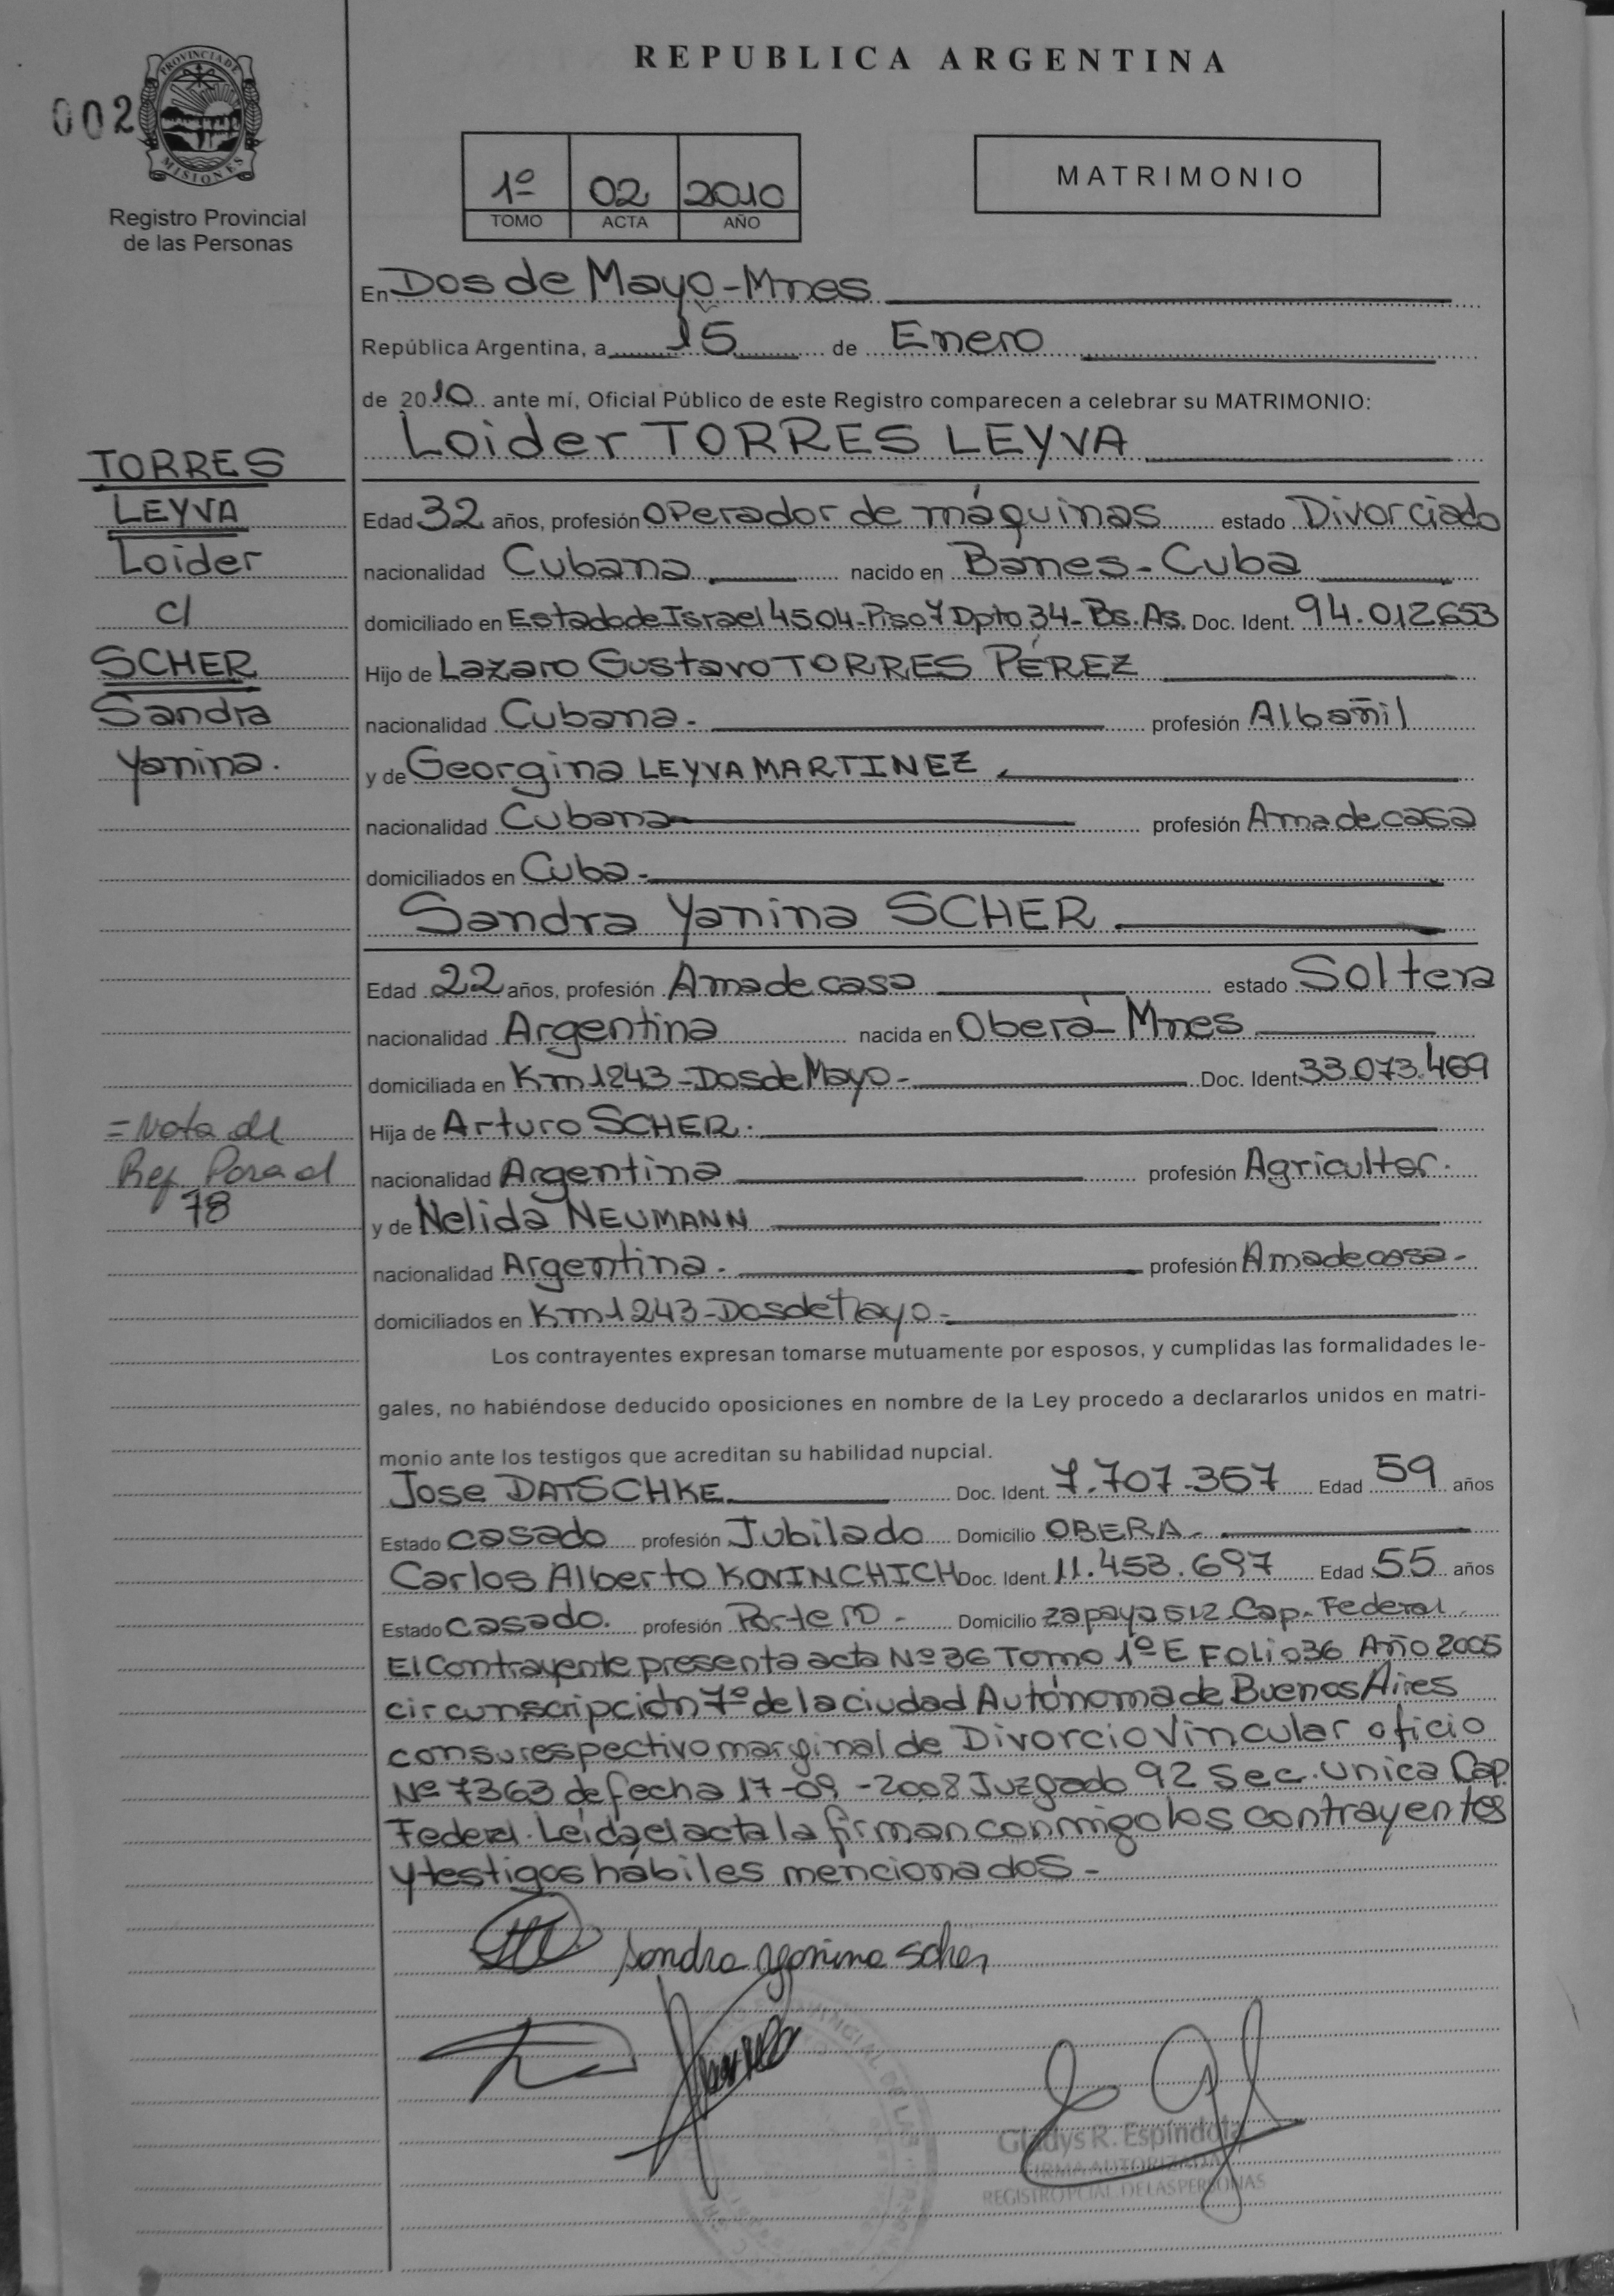 REPUBLICA ARGENTINA
002
PROVINCIA DE
MISIONES
Registro Provincial
de las Personas
1º 02 2010
TOMO ACTA AÑO
MATRIMONIO
En Dos de Mayo - Mnes
República Argentina, a 15 de Enero
de 2010 ante mí, Oficial Público de este Registro comparecen a celebrar su MATRIMONIO:
Loider TORRES LEYVA
TORRES
LEYVA
Loider
c/
SCHER
Sandra
Yanina.
Edad 32 años, profesión Operador de máquinas estado Divorciado
nacionalidad Cubana nacido en Banes - Cuba
domiciliado en Estado de Israel 4504 - Piso 7 Dpto 34 - Bs. As. Doc. Ident. 94.012653
Hijo de Lazaro Gustavo TORRES PÉREZ
nacionalidad Cubana. profesión Albañil
y de Georgina LEYVA MARTINEZ
nacionalidad Cubana profesión Ama de casa
domiciliados en Cuba -
Sandra Yanina SCHER
Edad 22 años, profesión Ama de casa estado Soltera
nacionalidad Argentina nacida en Oberá - Mnes
domiciliada en Km 1243 - Dos de Mayo - Doc. Ident. 33.073.469
Hija de Arturo SCHER.
nacionalidad Argentina profesión Agricultor.
y de Nelida NEUMANN
nacionalidad Argentina. profesión Ama de casa -
domiciliados en Km 1243 - Dos de Mayo -
= Nota de
Ref. Para el
78
Los contrayentes expresan tomarse mutuamente por esposos, y cumplidas las formalidades le-
gales, no habiéndose deducido oposiciones en nombre de la Ley procedo a declararlos unidos en matri-
monio ante los testigos que acreditan su habilidad nupcial.
Jose DATSCHKE Doc. Ident. 7.707.357 Edad 59 años
Estado casado profesión Jubilado Domicilio OBERA -
Carlos Alberto KOVINCHICH Doc. Ident. 11.453.697 Edad 55 años
Estado casado. profesión Domicilio zapaya 512 Cap. Federal
El Contrayente presenta acta Nº 36 Tomo 1º E Folio 36 Año 2005
circunscripción 7º de la ciudad Autónoma de Buenos Aires
con su respectivo marginal de Divorcio Vincular oficio
Nº 7363 de fecha 17-09-2008 Juzgado 92 Sec. Unica Cap.
Federal. Leída el acta la firman conmigo los contrayentes
y testigos hábiles mencionados -
Sandra Yanina Scher
Gladys R. Espíndola
FIRMA AUTORIZADA
REGISTRO PCIAL. DE LAS PERSONAS